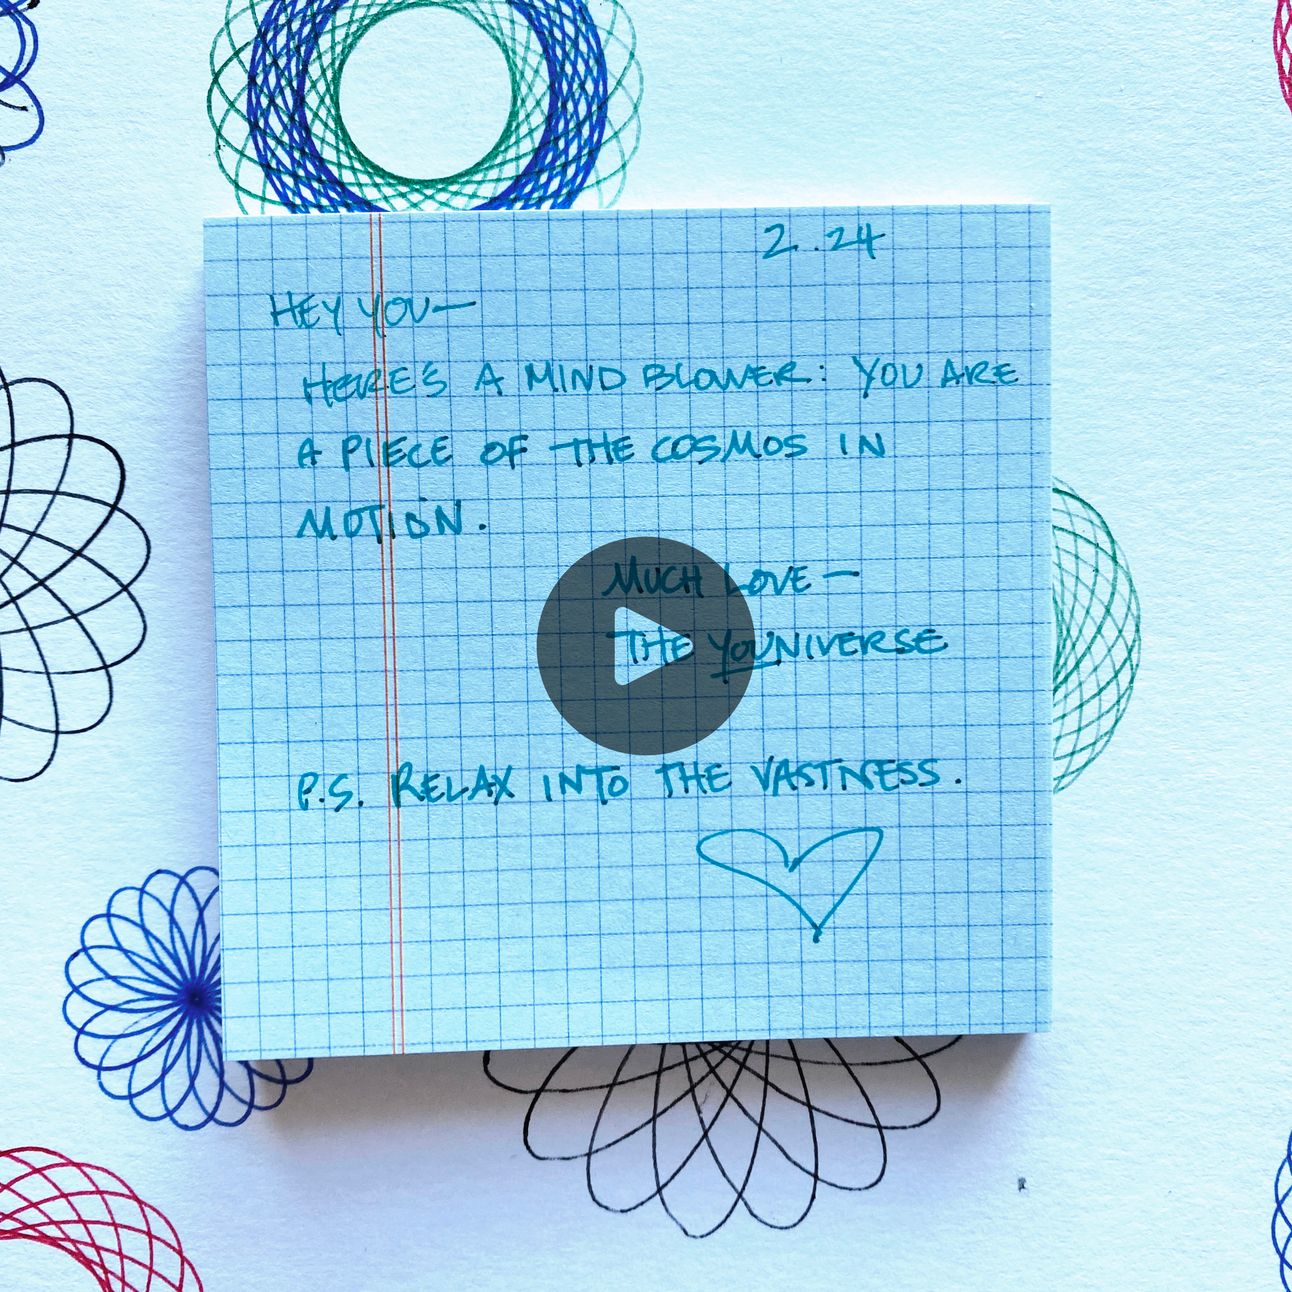 2..24
HEY YOU—
HERE'S A MIND BLOWER: YOU ARE
A PIECE OF THE COSMOS IN
MOTION.
MUCH LOVE—
THE YOUNIVERSE
P.S. RELAX INTO THE VASTNESS.